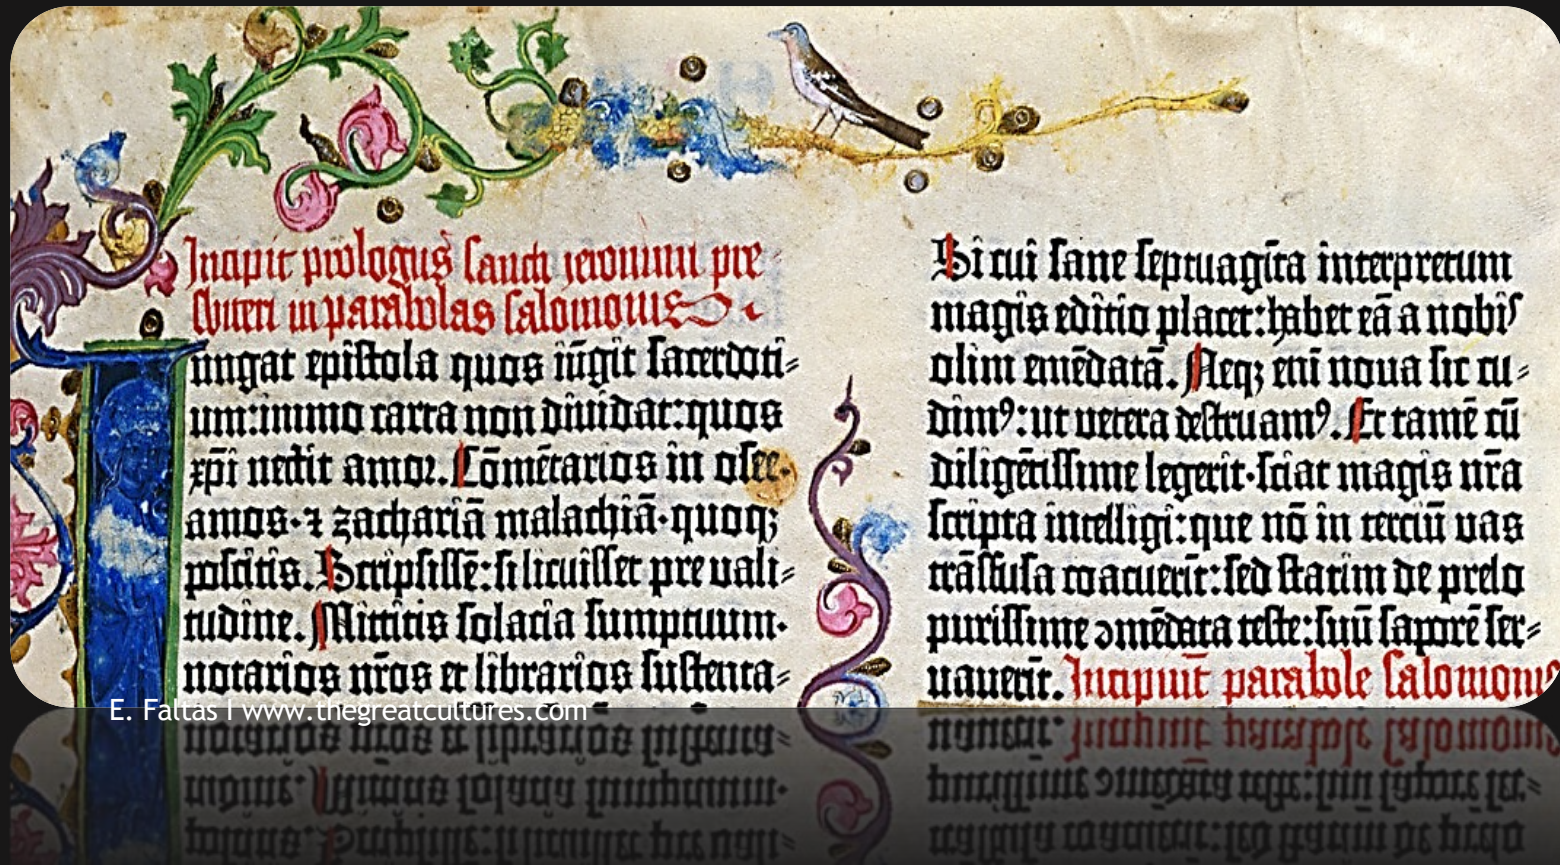 Incipit prologus sancti ieronimi pre
sbiteri in parabolas salomonis
Iungat epistola quos iūgit sacerdoti⸗
um:immo carta non diuidat:quos
xp̄i nectit amor. Cōmētarios in osee.
amos·⁊ zachariā malachiā·quoqꝫ
poscitis. Scripsissē:si licuisset pre uali⸗
tudine. Mittitis solacia sumptuum·
notarios nr̄os et librarios sustenta⸗
Si cui sane septuagīta interpretum
magis editio placet:habet eā a nobis
olim emēdatā. Neqꝫ enī noua sic cu⸗
dimꝰ:ut uetera destruamꝰ. Et tamē cū
diligētissime legerit·sciat magis nr̄a
scripta intelligi:que nō in terciū uas
trāsfusa coacuerīt:sed statim de prelo
purissime ꝯmēdata teste:suū saporē ser⸗
uauerīt. Incipiūt parabole salomonis
E. Faltas | www.thegreatcultures.com